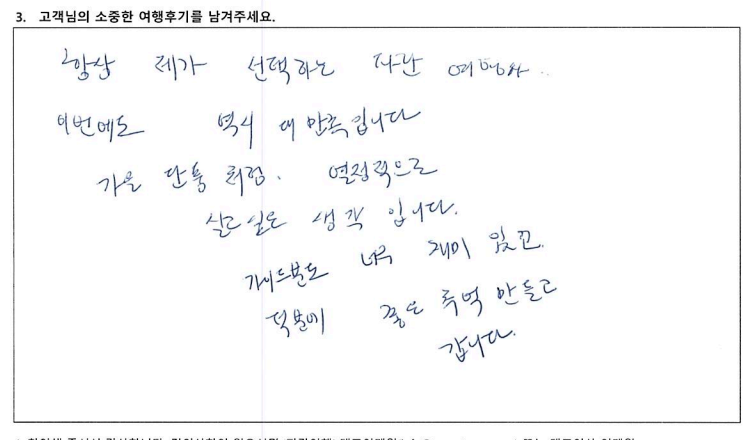 3. 고객님의 소중한 여행후기를 남겨주세요.
항상 제가 선택하는 자란 여행사..
이번에도 역시 대 만족입니다
가을 단풍 처럼. 열정적으로
살고 싶은 생각 입니다.
가이드분도 너무 재미 있고.
덕분에 좋은 추억 만들고
갑니다.